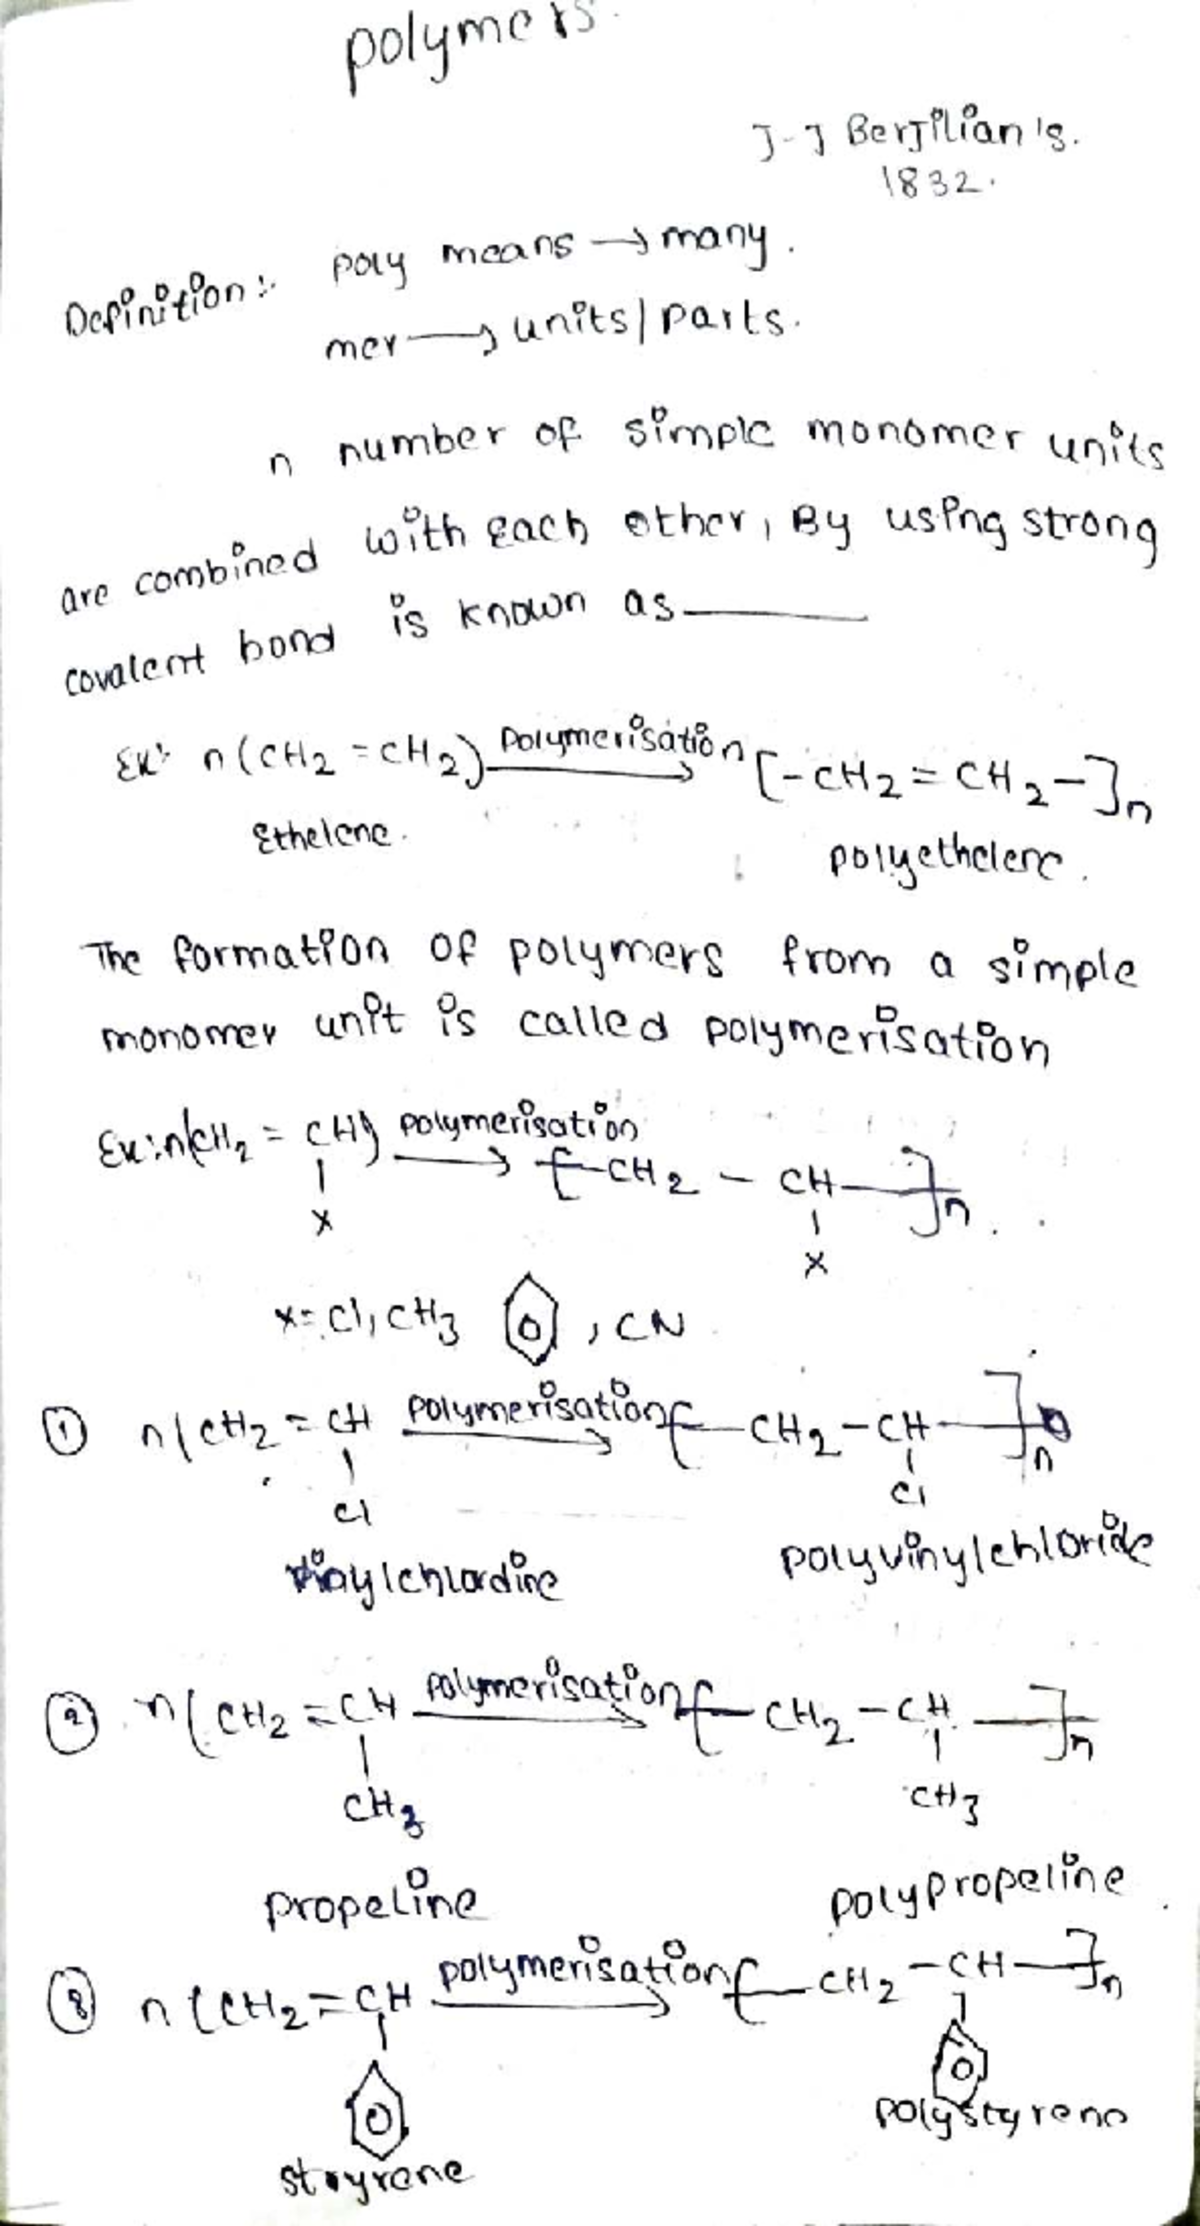 polymers.
J-J Berjilian's.
1832.
Definition:- poly means → many.
mer → units/parts.
n number of simple monomer units
are combined with each other, By using strong
covalent bond is known as ———
Ex: n(CH2 = CH2) polymerisation → [-CH2 = CH2-]n
Ethelene. polyethelene.
The formation of polymers from a simple
monomer unit is called polymerisation
Ex: n(CH2 = CH) polymerisation → [-CH2 - CH-]n.
x x
x = Cl, CH3 , CN
① n(CH2 = CH polymerisation → [-CH2 - CH-]n
Cl Cl
vinylchlordine polyvinylchloride
② n(CH2 = CH polymerisation → [-CH2 - CH-]n
CH3 CH3
propeline polypropeline
③ n(CH2 = CH polymerisation → [-CH2 - CH-]n
styrene polystyrene